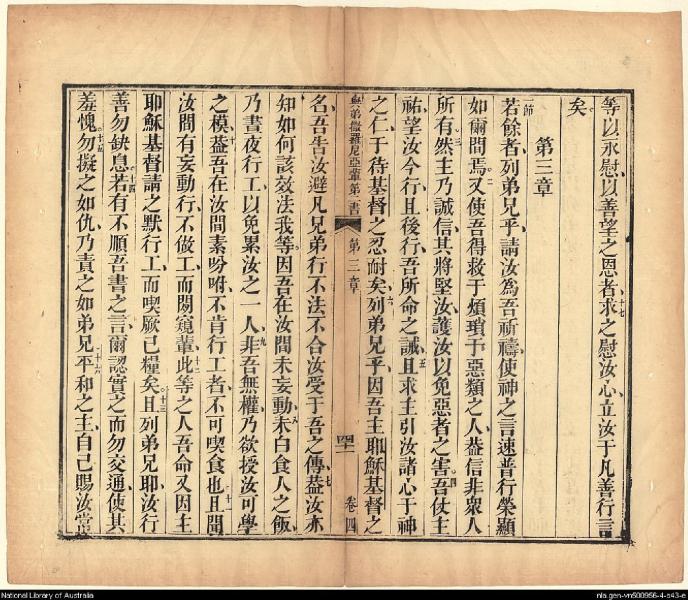 等以永慰以善望之恩者十七求之慰汝心立汝于凡善行言
矣
第三章
一節若餘者列弟兄乎請汝為吾祈禱使神之言速普行榮顯
如爾間焉二又使吾得救于煩瑣于惡類之人蓋信非衆人
所有然三主乃誠信其將堅汝護汝以免惡者之害四吾仗主
祐望汝今行且後行吾所命之誡五且求主引汝諸心于神
之仁于待基督之忍耐矣六列弟兄乎因吾主耶穌基督之
與弟撒羅尼亞輩第二書 第三章 四十一 卷四
名吾告汝避凡兄弟行不法不合汝受于吾之傳七蓋汝亦
知如何該效法我等因吾在汝間未妄動八未白食人之飯
乃晝夜行工以免累汝之一人九非吾無權乃欲授汝可學
之模十蓋吾在汝間素吩咐不肯行工者不可喫食也十一且聞
汝間有妄動行不做工而閱窺輩十二此等之人吾命又因主
耶穌基督請之默行工而喫厥己糧矣十三且列弟兄耶汝行
善勿缺息十四若有不順吾書之言爾認實之而勿交通使其
羞愧十五勿擬之如仇乃責之如弟兄十六平和之主自己賜汝當
National Library of Australia
nla.gen-vn500956-4-s43-e